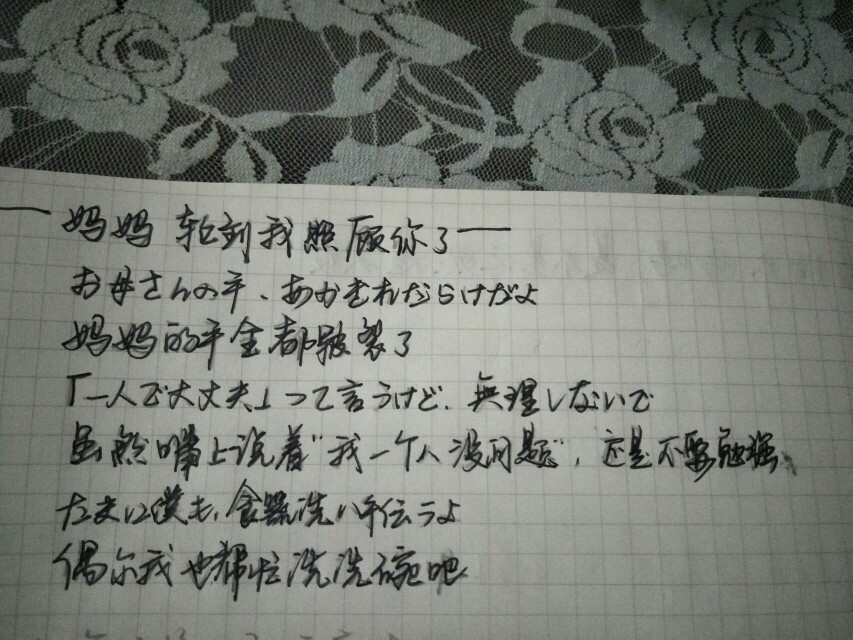 一 妈妈 轮到我照顾你了 一
お母さんの手、あかぎれだらけだよ
妈妈的手全都皲裂了
「一人で大丈夫」って言うけど、無理しないで
虽然嘴上说着"我一个人没问题"，这是不要勉强、
たまに僕も、食器洗い手伝うよ
偶尔我也帮忙洗洗碗吧